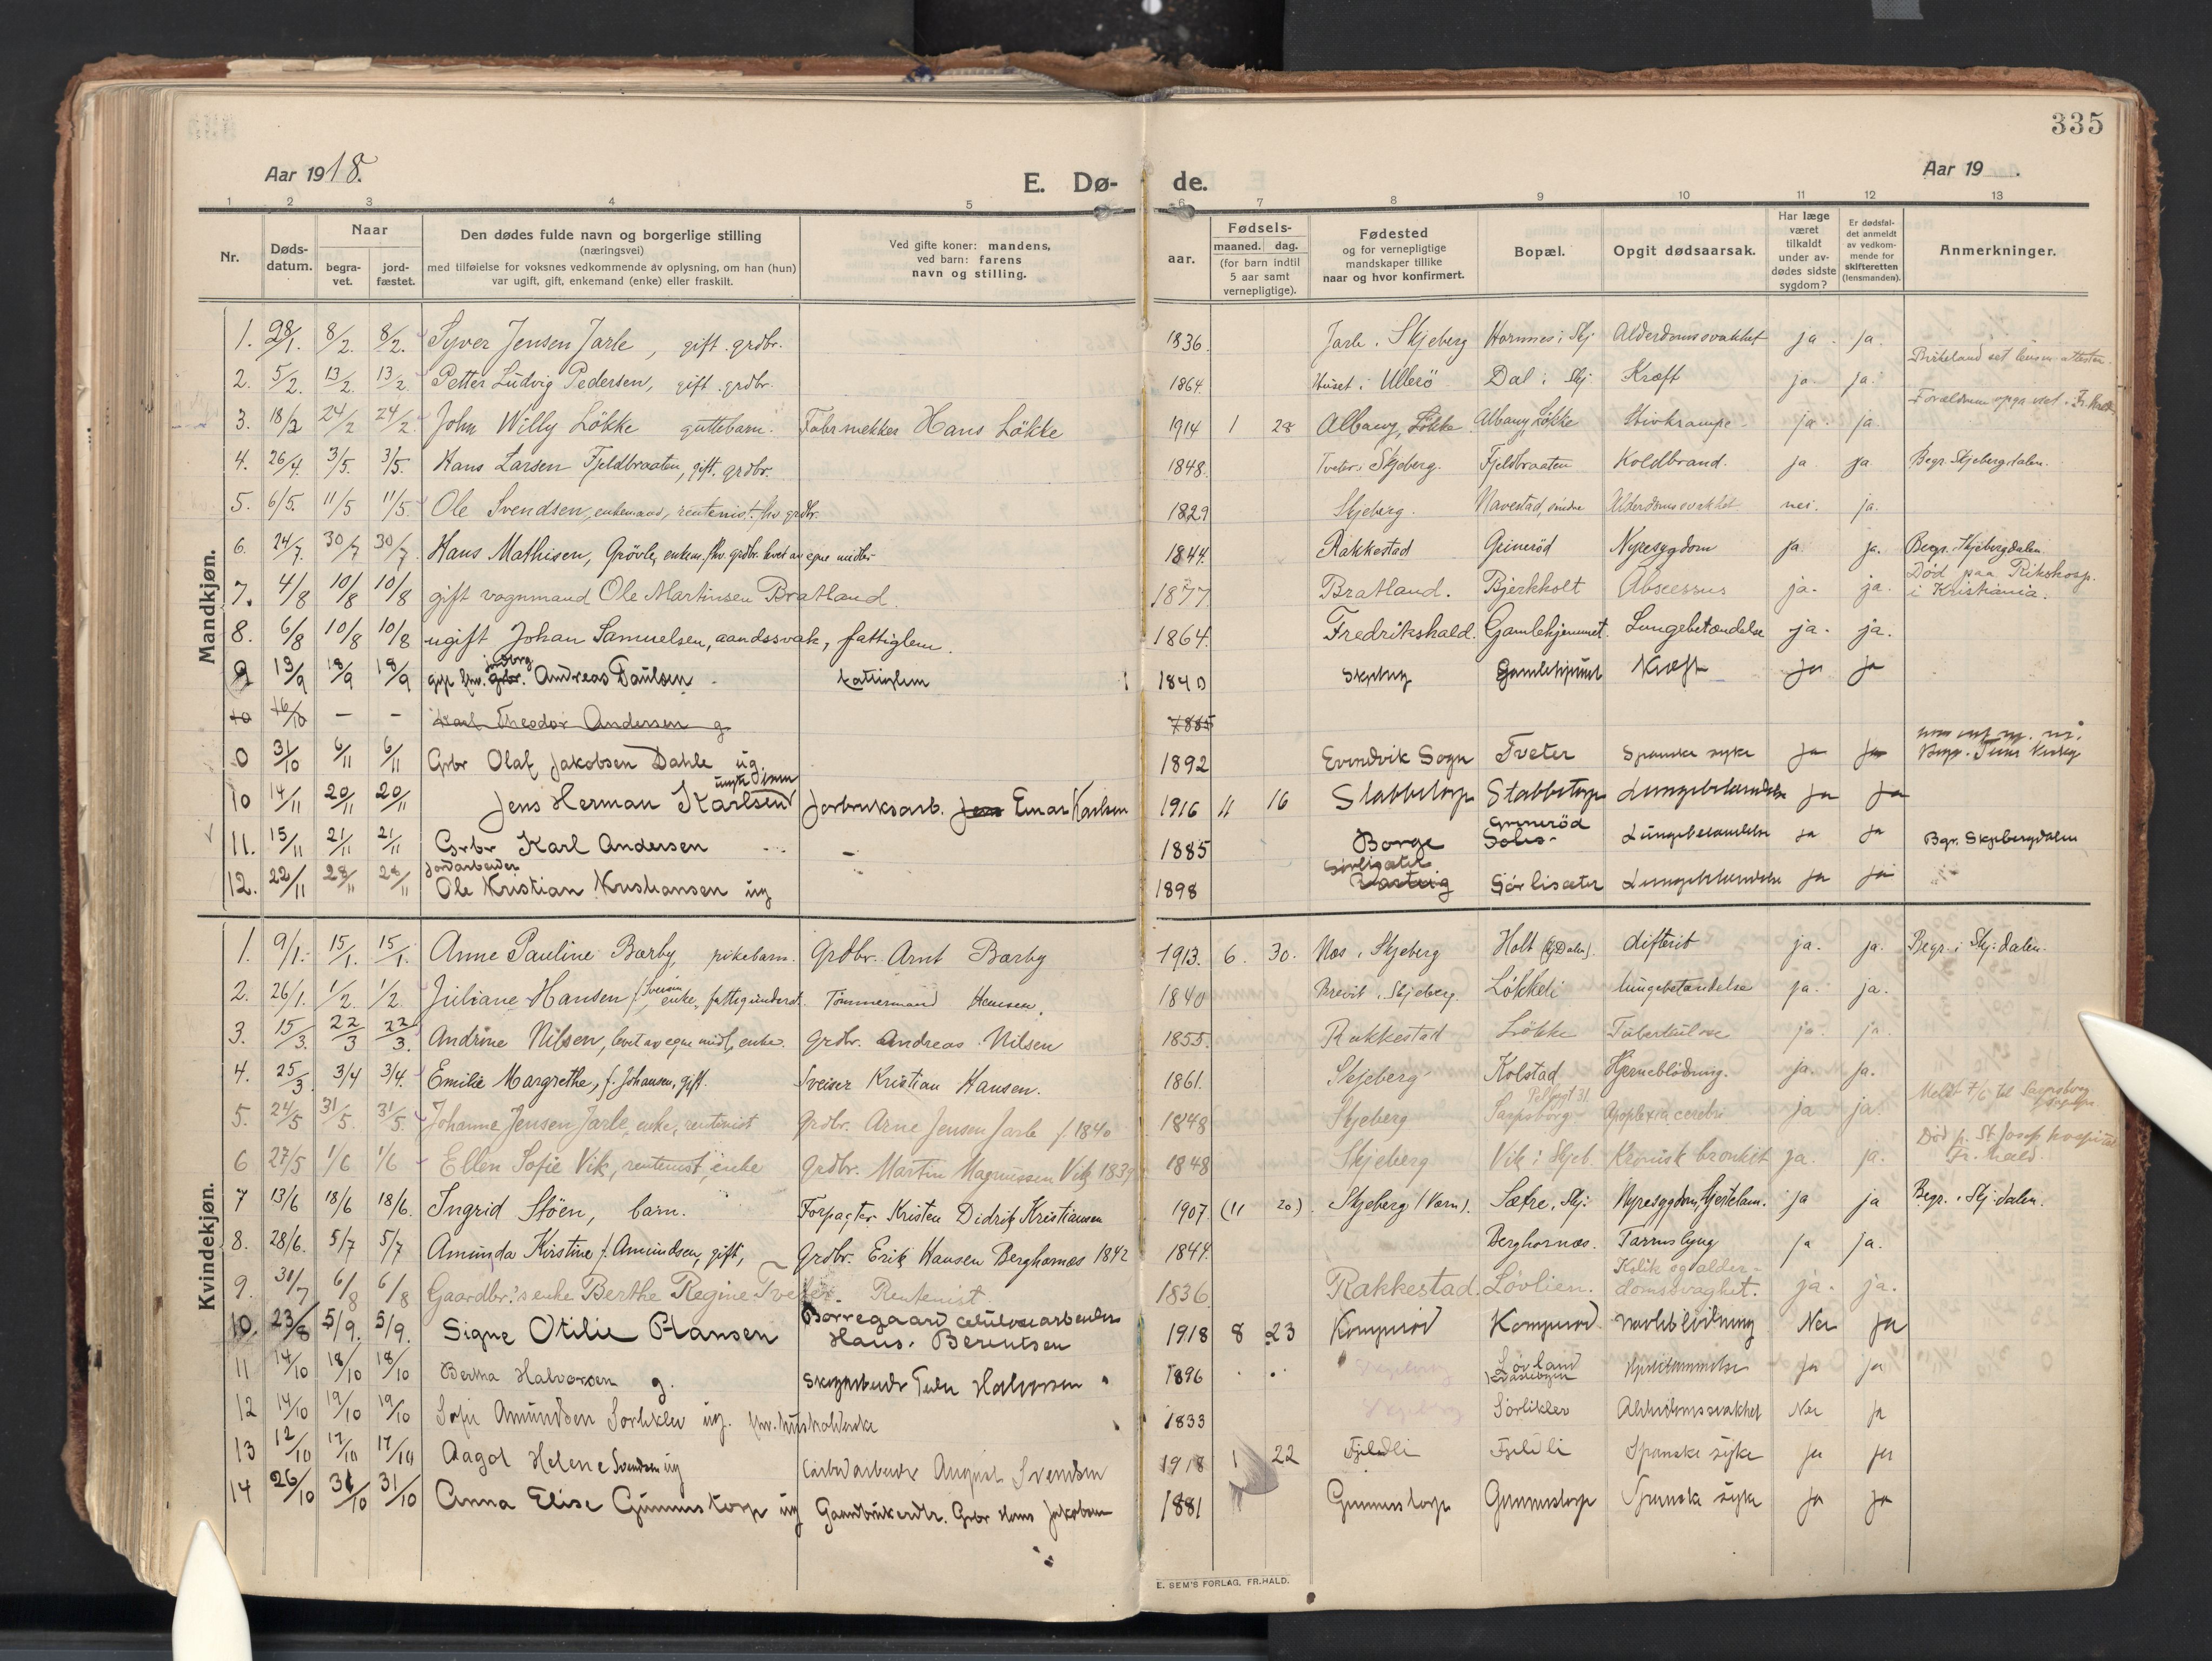 335
Aar 1918.
E. Dø-
de.
Aar 19 .
1 2 3 4 5 6 7 8 9 10 11 12 13
Nr.
Døds-
datum.
Naar
begra-
vet.
jord-
fæstet.
Den dødes fulde navn og borgerlige stilling
(næringsvei)
med tilføielse for voksnes vedkommende av oplysning, om han (hun)
var ugift, gift, enkemand (enke) eller fraskilt.
Ved gifte koner: mandens,
ved barn: farens
navn og stilling.
aar.
Fødsels-
maaned. dag.
(for barn indtil
5 aar samt
vernepligtige).
Fødested
og for vernepligtige
mandskaper tillike
naar og hvor konfirmert.
Bopæl.
Opgit dødsaarsak.
Har læge
været
tilkaldt
under av-
dødes sidste
sygdom?
Er dødsfal-
det anmeldt
av vedkom-
mende for
skifteretten
(lensmanden).
Anmerkninger.
Mandkjøn.
1. 28/1. 8/2. 8/2. Syver Jensen Jarle, gift. grdbr. 1836. Jarle i Skjeberg Hornnes i Skj Alderdomssvakhet ja. ja.
2. 5/2. 13/2. 13/2 Petter Ludvig Pedersen, gift. grdbr. 1864. Huset i Ullerö Dal i Skj. Kræft ja ja.
3. 18/2 24/2 24/2. John Willy Lökke guttebarn. Fabr snekker Hans Lökke 1914 1 28 Albany, Lökke Albany, Lökke Stivkrampe ja. ja.
4. 26/4. 3/5. 3/5. Hans Larsen Fjeldbraaten, gift. grdbr. 1848. Tveter i Skjeberg. Fjeldbraaten Koldbrand. ja ja Begr. Skjebergdalen.
5. 6/5. 11/5 11/5. Ole Svendsen, enkemand, rentenist. fhv grdbr. 1829 Skjeberg. Navestad, søndre Alderdomssvakhet. nei. ja.
6. 24/7. 30/7 30/7. Hans Mathisen, Grövle, enkem. fhv. grdbr. levet av egne midler 1844. Rakkestad Grinerød Nyresygdom ja ja. Begr. Skjebergdalen
7. 4/8 10/8 10/8 gift vognmand Ole Martinsen Bratland 1877. Bratland. Bjerkholt Abscessus ja. ja. Död paa Rikshosp.
i Kristiania.
8. 6/8 10/8 10/8 ugift Johan Samuelsen, aandssvak, fattiglem. 1864. Fredrikshald. Gamlehjemmet. Lungebetændelse ja. ja.
9 13/9 18/9 18/9 fhv. Andreas Paulsen fattiglem 1840 Skjeberg Gamlehjemmet Kræft ja ja
10 16/10 — — Karl Theodor Andersen g. 1885
0 31/10 6/11 6/11 Grbr Olaf Jakobsen Dahle ug. 1892 Evindvik Sogn Tveter Spanske syke ja ja
10 14/11 20/11 20/11 Jens Herman Karlsen Jorbruksarb. Jens Einar Karlsen 1916 11 16 Stabbetorp Stabbetorp Lungebetændelse ja ja
11. 15/11 21/11 21/11 Grbr Karl Andersen 1885 Borge Grinerød Lungebetændelse ja ja Bgr. Skjebergdalen
12. 22/11 28/11 28/11 Jordarbeider
Ole Kristian Kristiansen ug 1898 Sørlisæter Sørlisæter Lungebetændelse ja ja
Kvindekjøn.
1. 9/1. 15/1. 15/1. Anne Pauline Barby, pikebarn. Grdbr. Arnt Barby 1913. 6. 30. Nes i Skjeberg Holt difterit ja. ja. Begr. i Skj. dalen.
2. 26/1. 1/2. 1/2. Juliane Hansen enke, fattigunderst. Tömmermand Hansen. 1840 Brevik i Skjeberg. Løkkeli lungebetændelse ja. ja.
3. 15/3. 22/3 22/3. Andrine Nilsen, levet av egne midl., enke. Grdbr. Andreas Nilsen 1855. Rakkestad Lökke Tuberkulose ja. ja.
4. 25/3. 3/4 3/4. Emilie Margrethe, f. Johansen, gift. Sveiser Kristian Hansen. 1861. Skjeberg Kolstad Hjerneblödning. ja. ja.
5. 24/5 31/5. 31/5. Johanne Jensen Jarle, enke, rentenist Grdbr. Arne Jensen Jarle f. 1840 1848 Skjeberg Sarpsborg Apoplexia cerebri ja ja.
6 27/5 1/6 1/6 Ellen Sofie Vik, rentenist, enke Grdbr. Martin Magnussen Vik 1839 1848 Skjeberg Vik i Skjeb. Kronisk bronkit ja. ja. Död p. St. Josep. hospital
Fr.hald.
7 13/6 18/6 18/6. Ingrid Stöen, barn. Forpagter Kristen Didrik Kristiansen 1907. (11 20). Skjeberg (Varn). Sætre, Skj. Nyresygdom, Hjertelam. ja ja Begr. i Skj. dalen.
8. 28/6. 5/7 5/7 Amunda Kristine f. Amundsen, gift, Grdbr. Erik Hansen Berghornæs 1842 1844. Berghornæs. Tarmslyng ja ja.
9. 31/7 6/8 6/8 Gaardbr.'s enke Berthe Regine Tveter. Rentenist 1836. Rakkestad. Lövlien. Kolik og alder-
domssvaghet. ja. ja.
10. 23/8 5/9. 5/9. Signe Otilie Hansen Borregaard celulosearbeider
Hans. Berentsen 1918 8 23 Kompusød Kompusød Navleblödning Nei ja
11 14/10 18/10 18/10 Bertha Halvorsen g. Halvorsen 1896 Skjeberg Løvland ja ja
12 14/10 19/10 19/10 Sofie Amundsen Sørliklev ug. fhv. husholderske 1833 Skjeberg Sørliklev Alderdomssvakhet Nei ja
13 12/10 17/10 17/10 Aagot Helene Svendsen ug August Svendsen 1918 1 22 Fjeldli Fjeldli Spanske syke ja ja
14 26/10 31/10 31/10 Anna Elise Gunnestorp ug Gaardbrukerdtr. Grbr Hans Jakobsen 1881 Gunnestorp Gunnestorp Spanske syke ja ja
E. SEM'S FORLAG, FR.HALD.